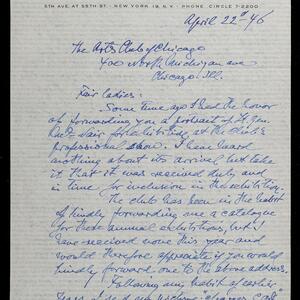 5TH AVE. AT 55TH ST. · NEW YORK 19, N.Y. · PHONE, CIRCLE 7-2200
April 22nd 46
The Arts Club of Chicago
400 North Michigan ave
Chicago. Ill.
Fair Ladies:
Some time ago I had the honor
of forwarding you a portrait of Lt. Gen.
for exhibition at the club's
professional show. I have heard
nothing about its arrival but take
it that it was received duly and
in time for inclusion in the exhibition.
The club has been in the habit
of kindly forwarding me a catalogue
for these annual exhibitions, but I
have received none this year and
would therefore appreciate if you would
kindly forward one to the above address.
Following my habit of earlier
years